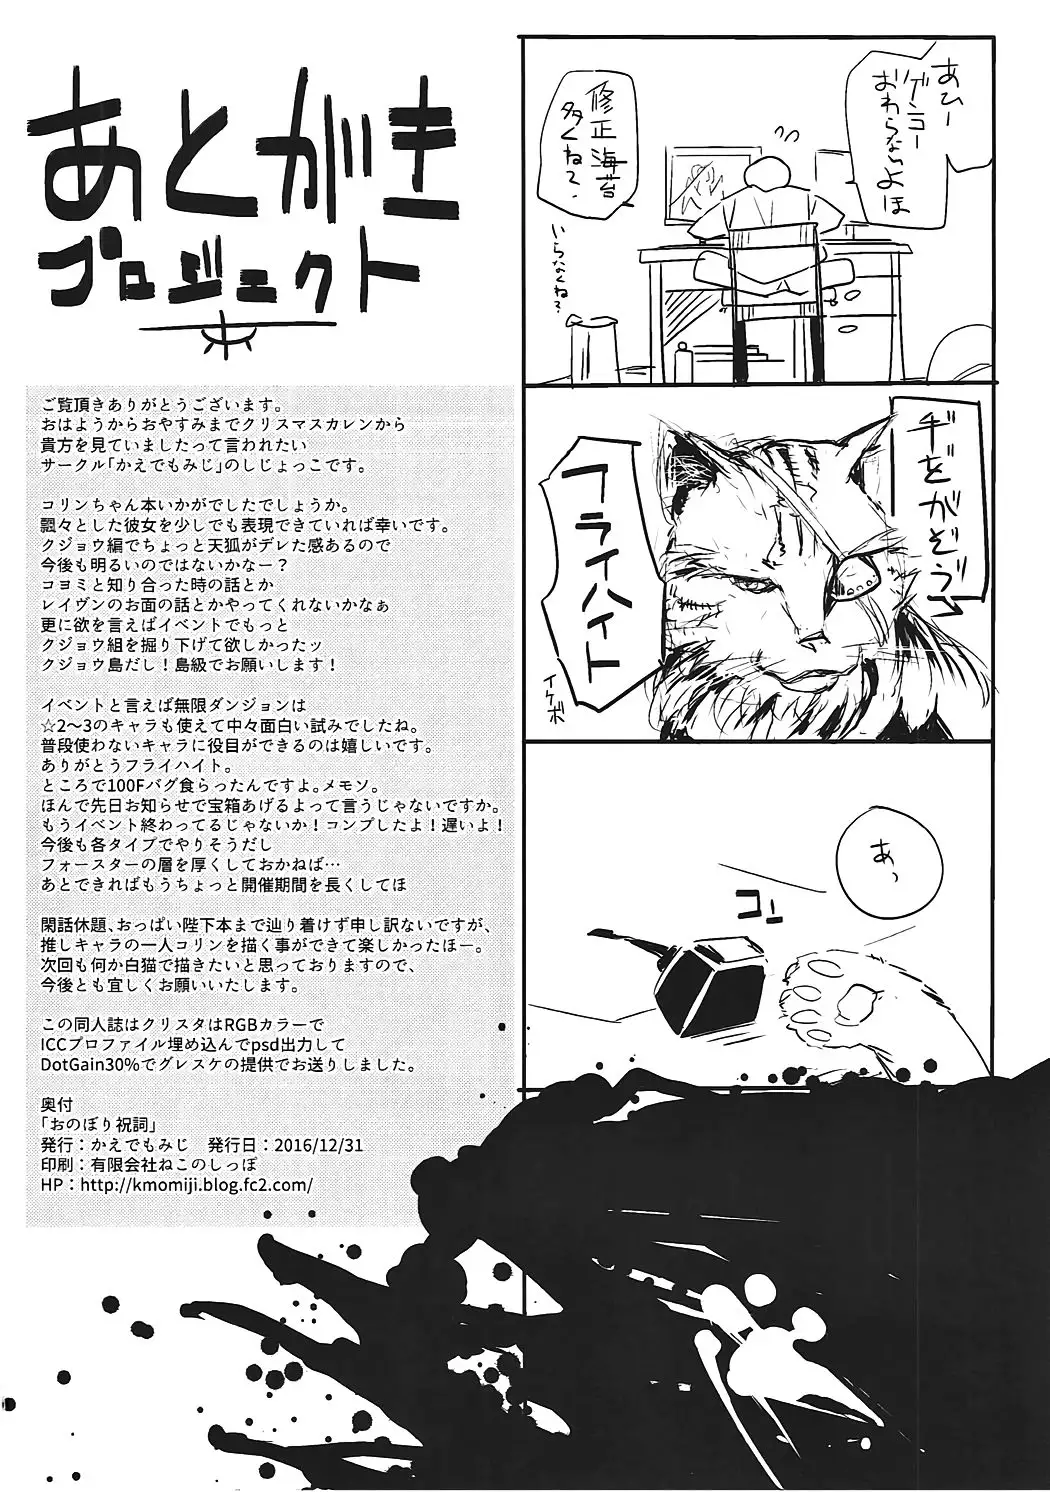 あとがき
プロジェクト
ご覧頂きありがとうございます。
おはようからおやすみまでクリスマスカレンから
貴方を見ていましたって言われたい
サークル「かえでもみじ」のしじょっこです。
コリンちゃん本いかがでしたでしょうか。
飄々とした彼女を少しでも表現できていれば幸いです。
クジョウ編でちょっと天狐がデレた感あるので
今後も明るいのではないかなー？
コヨミと知り合った時の話とか
レイヴンのお面の話とかやってくれないかなぁ
更に欲を言えばイベントでもっと
クジョウ組を掘り下げて欲しかったッ
クジョウ島だし！島級でお願いします！
イベントと言えば無限ダンジョンは
☆2～3のキャラも使えて中々面白い試みでしたね。
普段使わないキャラに役目ができるのは嬉しいです。
ありがとうフライハイト。
ところで100Fバグ食らったんですよ。メモソ。
ほんで先日お知らせで宝箱あげるよって言うじゃないですか。
もうイベント終わってるじゃないか！コンプしたよ！遅いよ！
今後も各タイプでやりそうだし
フォースターの層を厚くしておかねば…
あとできればもうちょっと開催期間を長くしてほ
閑話休題、おっぱい陛下本まで辿り着けず申し訳ないですが、
推しキャラの一人コリンを描く事ができて楽しかったほー。
次回も何か白猫で描きたいと思っておりますので、
今後とも宜しくお願いいたします。
この同人誌はクリスタはRGBカラーで
ICCプロファイル埋め込んでpsd出力して
DotGain30%でグレスケの提供でお送りしました。
奥付
「おのぼり祝詞」
発行：かえでもみじ　発行日：2016/12/31
印刷：有限会社ねこのしっぽ
HP：http://kmomiji.blog.fc2.com/
あひー
ゲンコー
おわらないよほ
修正海苔
多くね？
いらなくね？
チをがぞう
フライハイト
イケボ
あっ
コッ